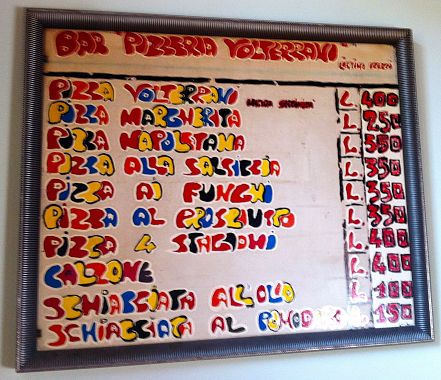 BAR "PIZZERIA VOLTERRANI"
LISTINO PREZZI
PIZZA VOLTERRANI L. 400
PIZZA MARGHERITA L. 250
PIZZA NAPOLETANA L. 350
PIZZA ALLA SALSICCIA L. 350
PIZZA AI FUNGHI L. 350
PIZZA AL PROSCIUTTO L. 350
PIZZA 4 STAGIONI L. 400
CALZONE L. 400
SCHIACCIATA ALL'OLIO L. 100
SCHIACCIATA AL POMODORO L. 150